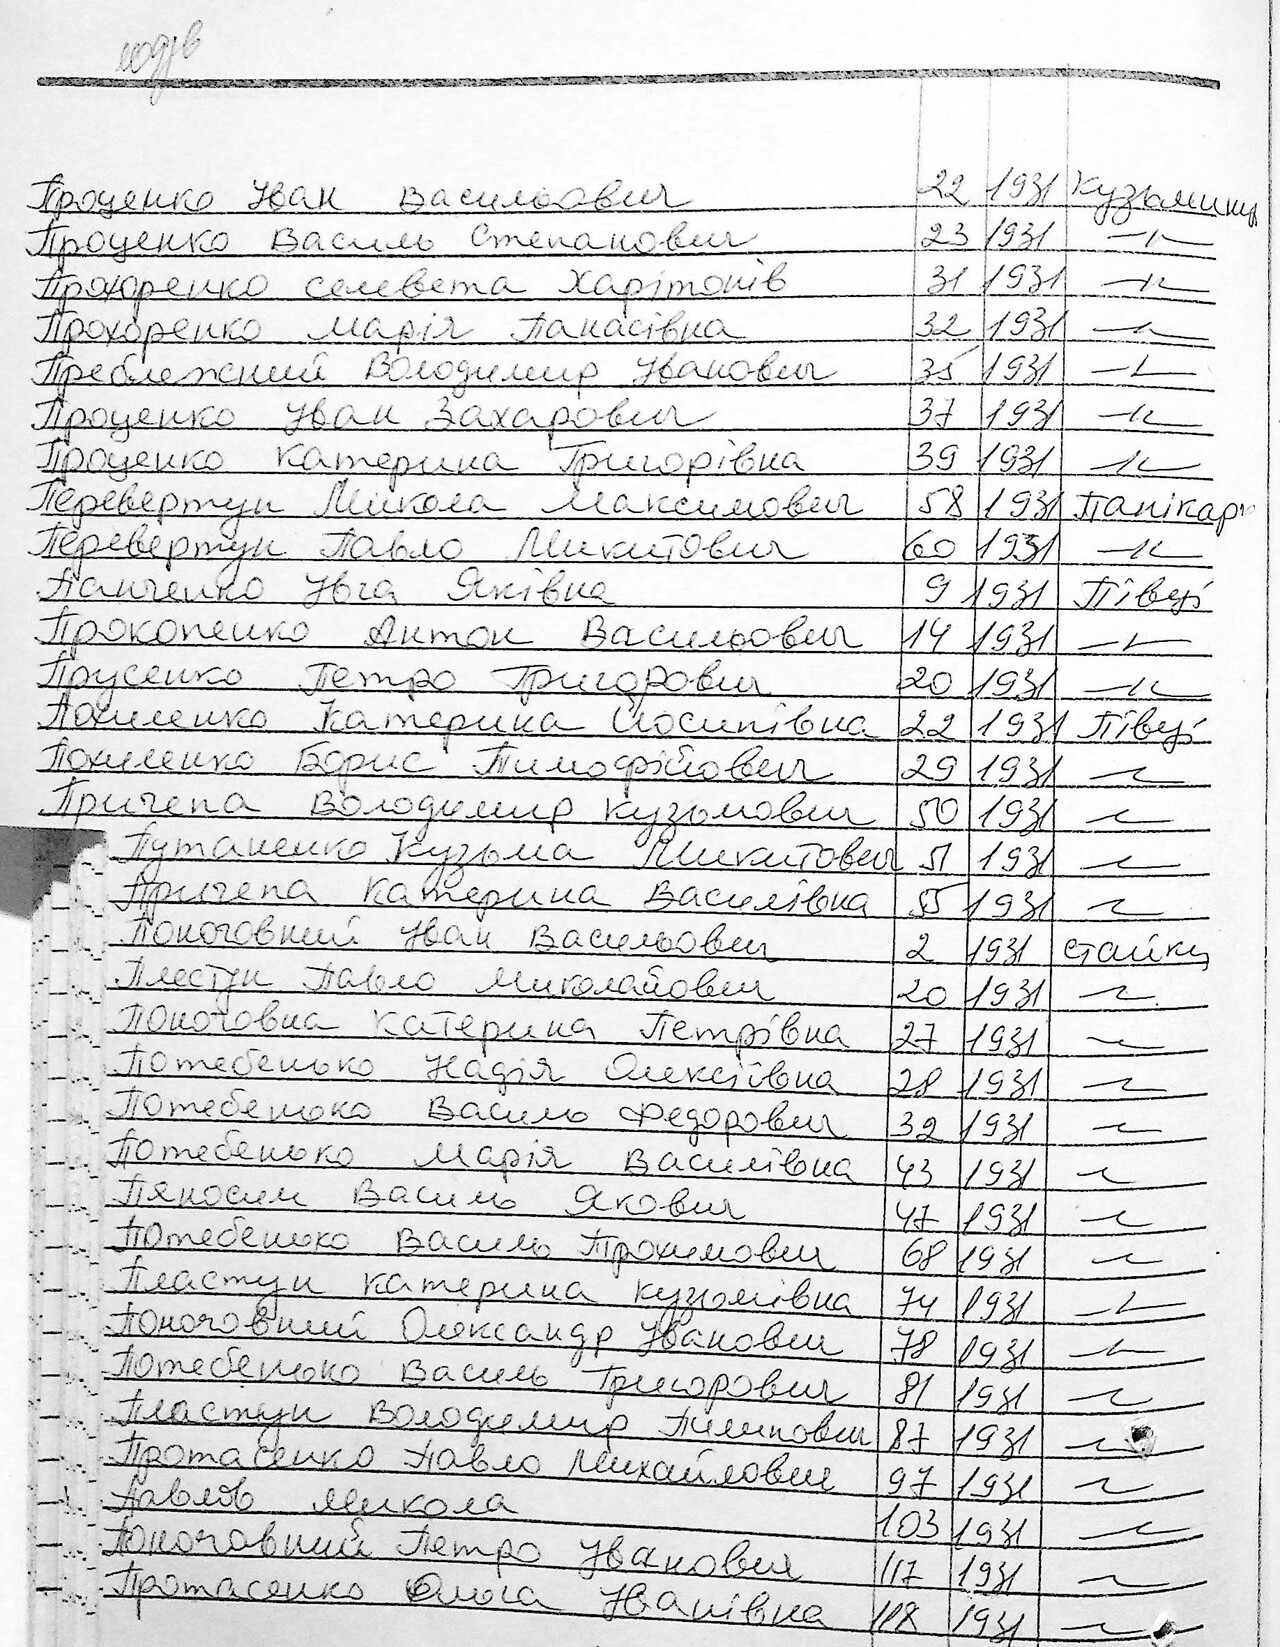 Проценко Іван Васильович 22 1931 Кузьминці
Проценко Василь Степанович 23 1931 —〃—
Прохоренко Селевета Харітонів 31 1931 —〃—
Прохоренко Марія Панасівна 32 1931 —〃—
Преблежний Володимир Іванович 35 1931 —〃—
Проценко Іван Захарович 37 1931 —〃—
Проценко Катерина Григорівна 39 1931 —〃—
Перевертун Микола Максимович 58 1931 Панікар
Перевертун Павло Микитович 60 1931 —〃—
Панченко Ївга Яківна 9 1931 Півці
Прокопенко Антон Васильович 14 1931 —〃—
Прусенко Петро Григорович 20 1931 —〃—
Похиленко Катерина Йосипівна 22 1931 Півці
Похиленко Борис Тимофійович 29 1931 —〃—
Причепа Володимир Кузьмович 50 1931 —〃—
Путаненко Кузьма Микитович 51 1931 —〃—
Причепа Катерина Василівна 55 1931 —〃—
Поночовний Іван Васильович 2 1931 Стайки
Пластун Павло Миколайович 20 1931 —〃—
Поночовна Катерина Петрівна 27 1931 —〃—
Потебенько Надія Олексіївна 28 1931 —〃—
Потебенько Василь Федорович 32 1931 —〃—
Потебенько Марія Василівна 43 1931 —〃—
Пяносим Василь Якович 47 1931 —〃—
Потебенько Василь Трохимович 68 1931 —〃—
Пластун Катерина Кузьмівна 74 1931 —〃—
Поночовний Олександр Іванович 78 1931 —〃—
Потебенько Василь Григорович 81 1931 —〃—
Пластун Володимир Пилипович 87 1931 —〃—
Протасенко Павло Михайлович 97 1931 —〃—
Павлів Микола 103 1931 —〃—
Поночовний Петро Іванович 117 1931 —〃—
Протасенко Ольга Іванівна 118 1931 —〃—